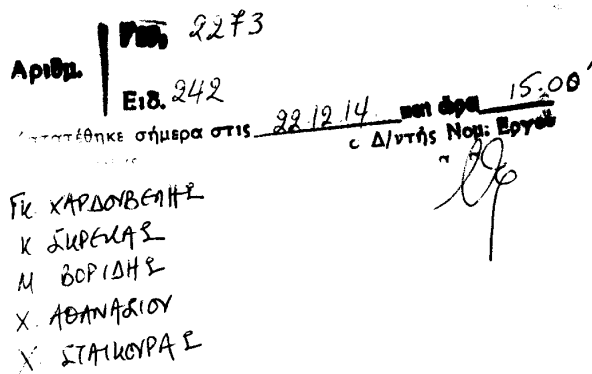 Αριθμ. Γεν. 2273
Ειδ. 242
κατατέθηκε σήμερα στις 22.12.14 και ώρα 15.00'
Δ/ντής Νομ: Εργου
Γκ. ΧΑΡΔΟΥΒΕΛΗΣ
Κ ΣΚΡΕΚΑΣ
Μ ΒΟΡΙΔΗΣ
Χ. ΑΘΑΝΑΣΙΟΥ
Χ ΣΤΑΙΚΟΥΡΑΣ